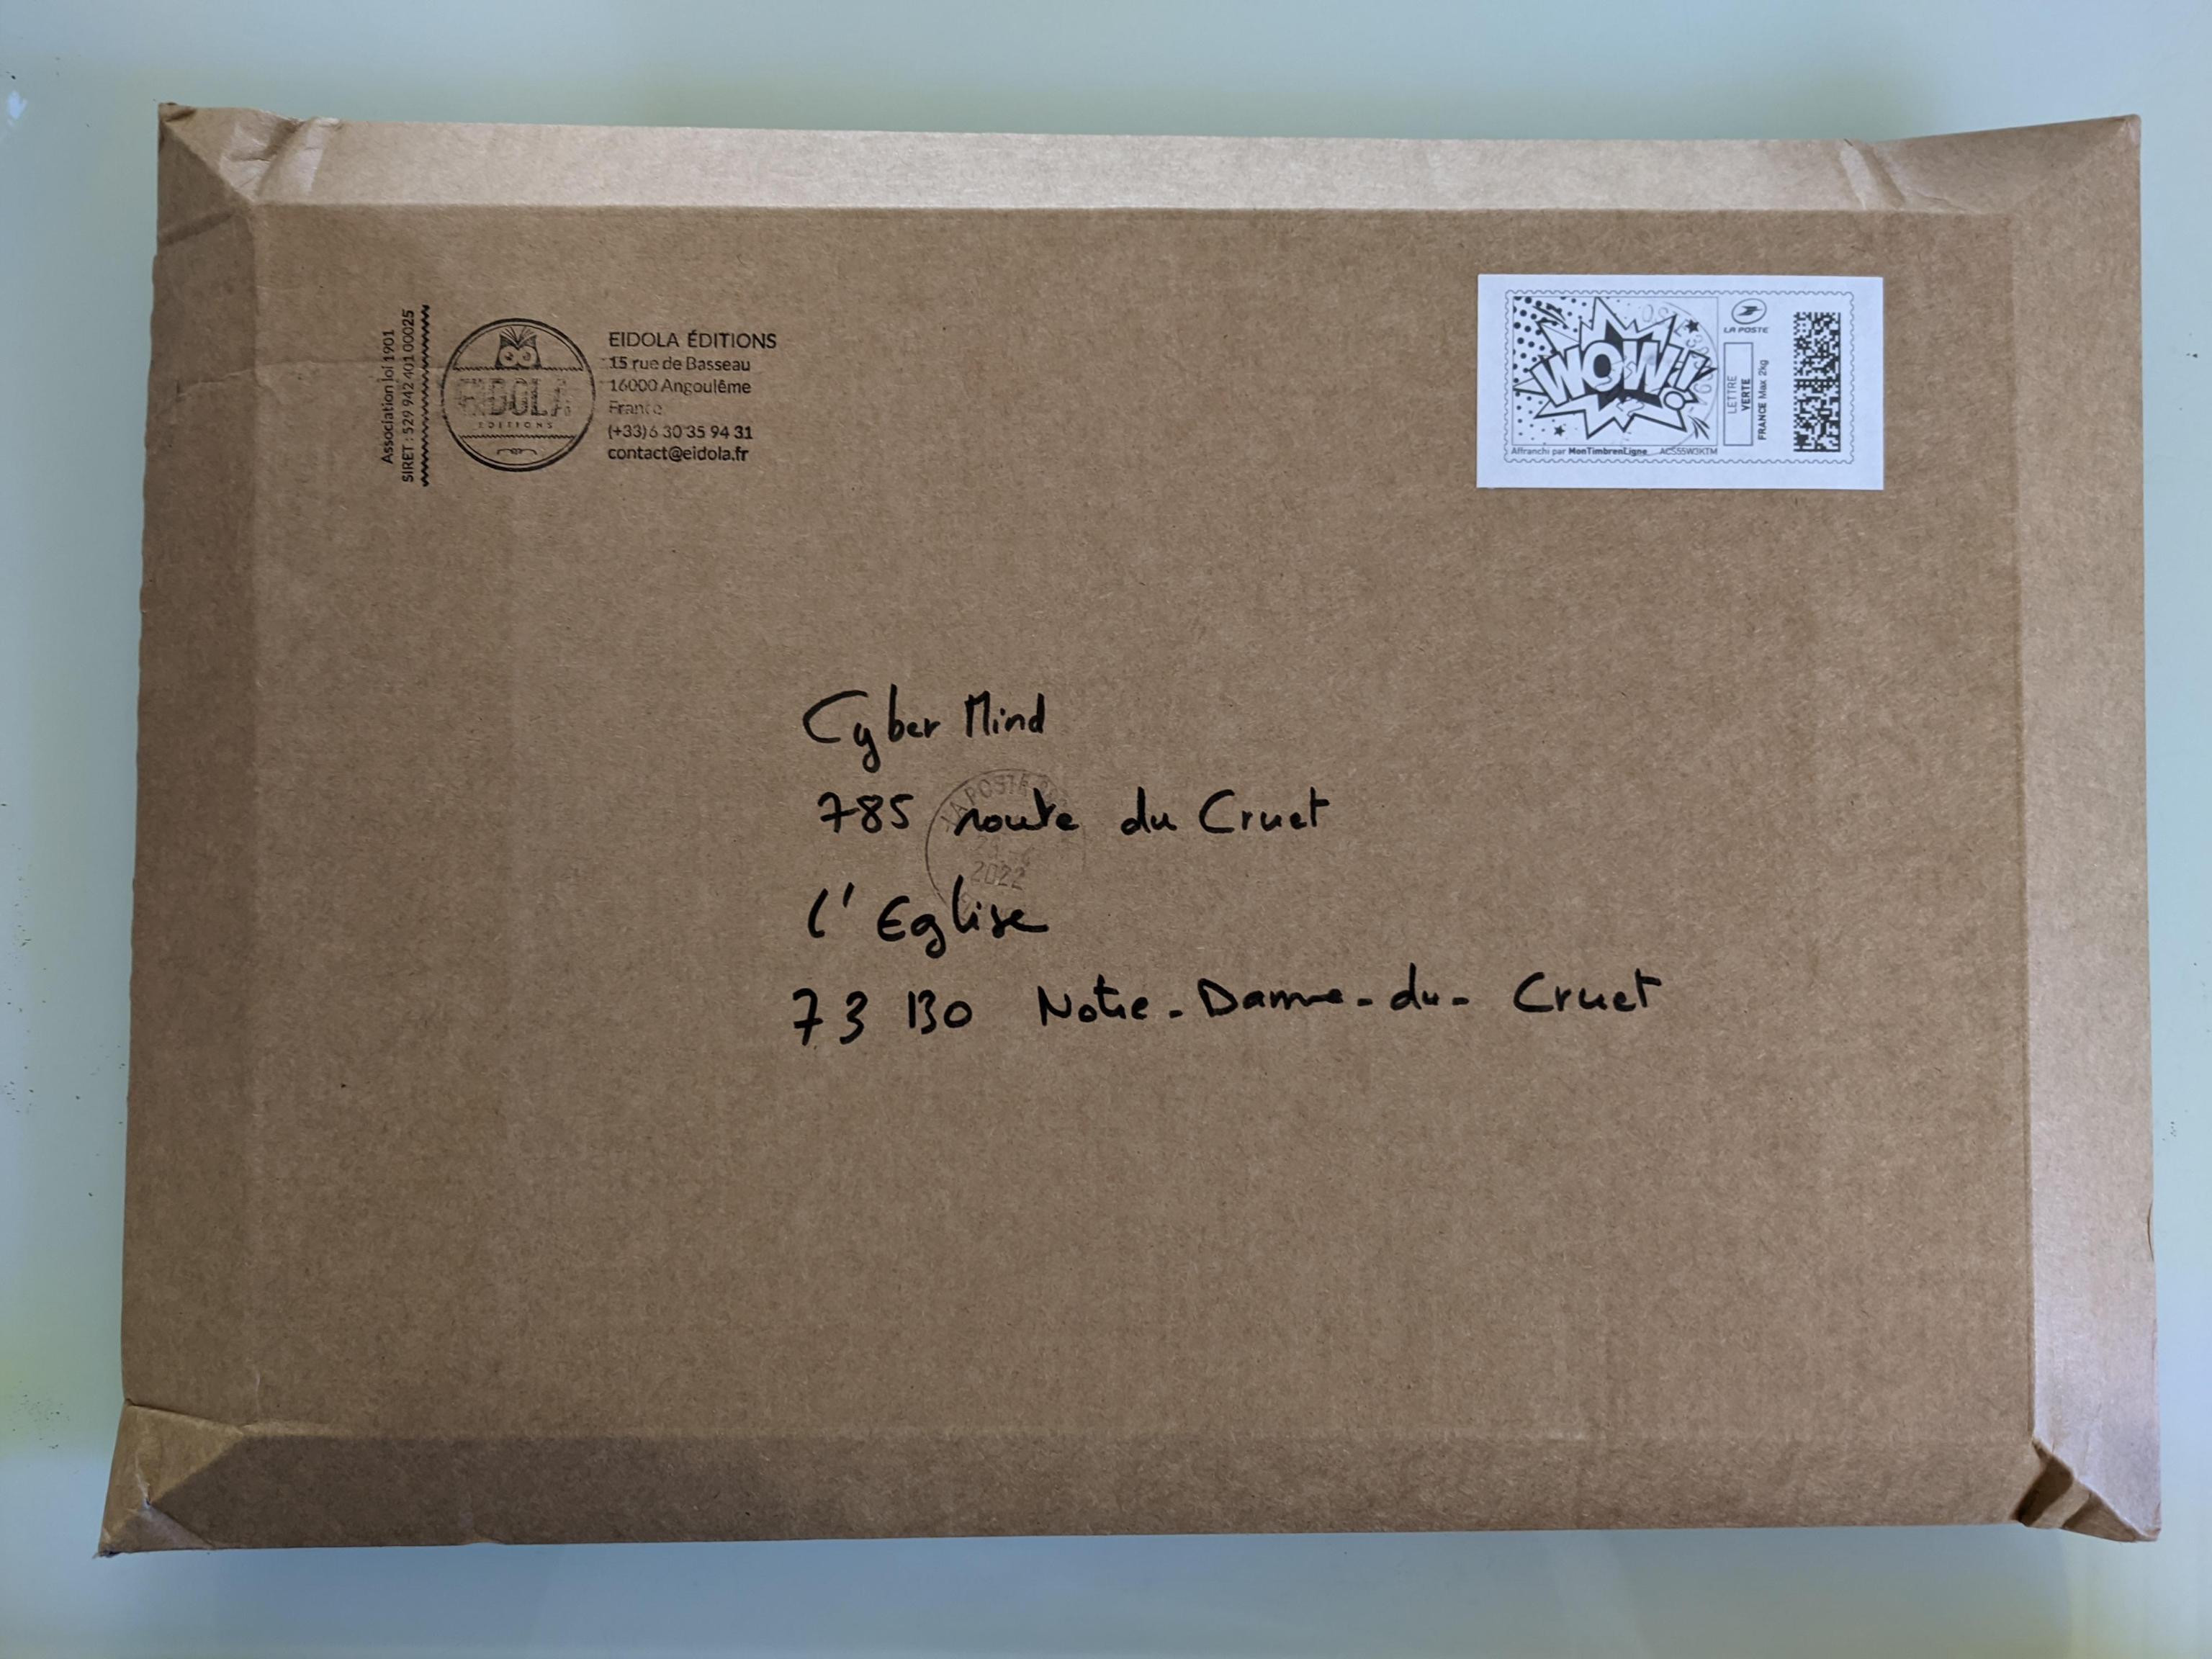 Association loi 1901
SIRET : 529 942 401 00025
EIDOLA
EDITIONS
EIDOLA ÉDITIONS
15 rue de Basseau
16000 Angoulême
France
(+33)6 30 35 94 31
contact@eidola.fr
WOW!
LA POSTE
LETTRE
VERTE
FRANCE Max 2kg
Affranchi par MonTimbrenLigne ACS55W3KTM
Cyber Mind
785 route du Cruet
l'Eglise
73 130 Notre-Dame-du-Cruet
LA POSTE
2022